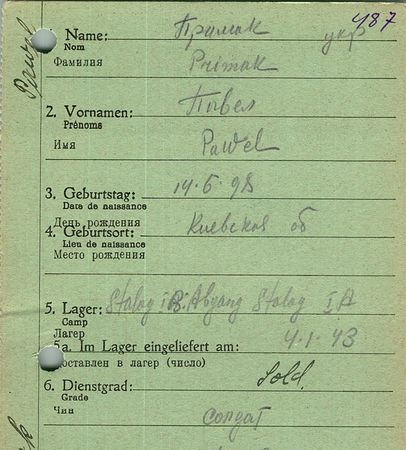 487
1. Name: Примак укр
Nom
Фамилия Primak
2. Vornamen: Павел
Prénoms
Имя Pawel
3. Geburtstag: 14.5.98
Date de naissance
День рождения
4. Geburtsort: Киевская об
Lieu de naissance
Место рождения
5. Lager: Stalag Abgang Stalag IA
Camp
Лагер
5a. Im Lager eingeliefert am: 4.1.43
Доставлен в лагер (число)
6. Dienstgrad: Sold.
Grade
Чин солдат